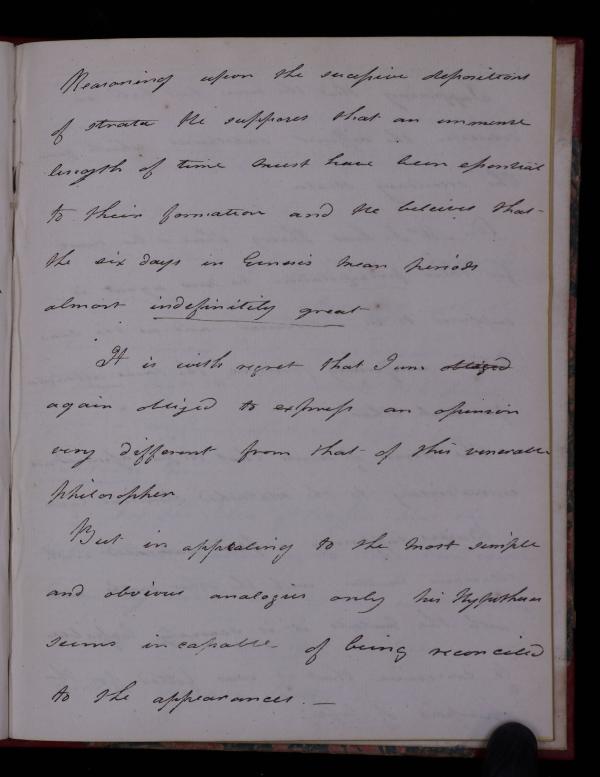 Reasoning upon the successive depositions
of strata He supposes that an immense
length of time must have been essential
to their formation and He beleives that
the six days in Genesis mean periods
almost indefinitely great
It is with regret that I am obliged
again obliged to express an opinion
very different from that of this venerable
philosopher
But in appealing to the most simple
and obvious analogies only his Hypotheses
seems incapable of being reconciled
to the appearances. —